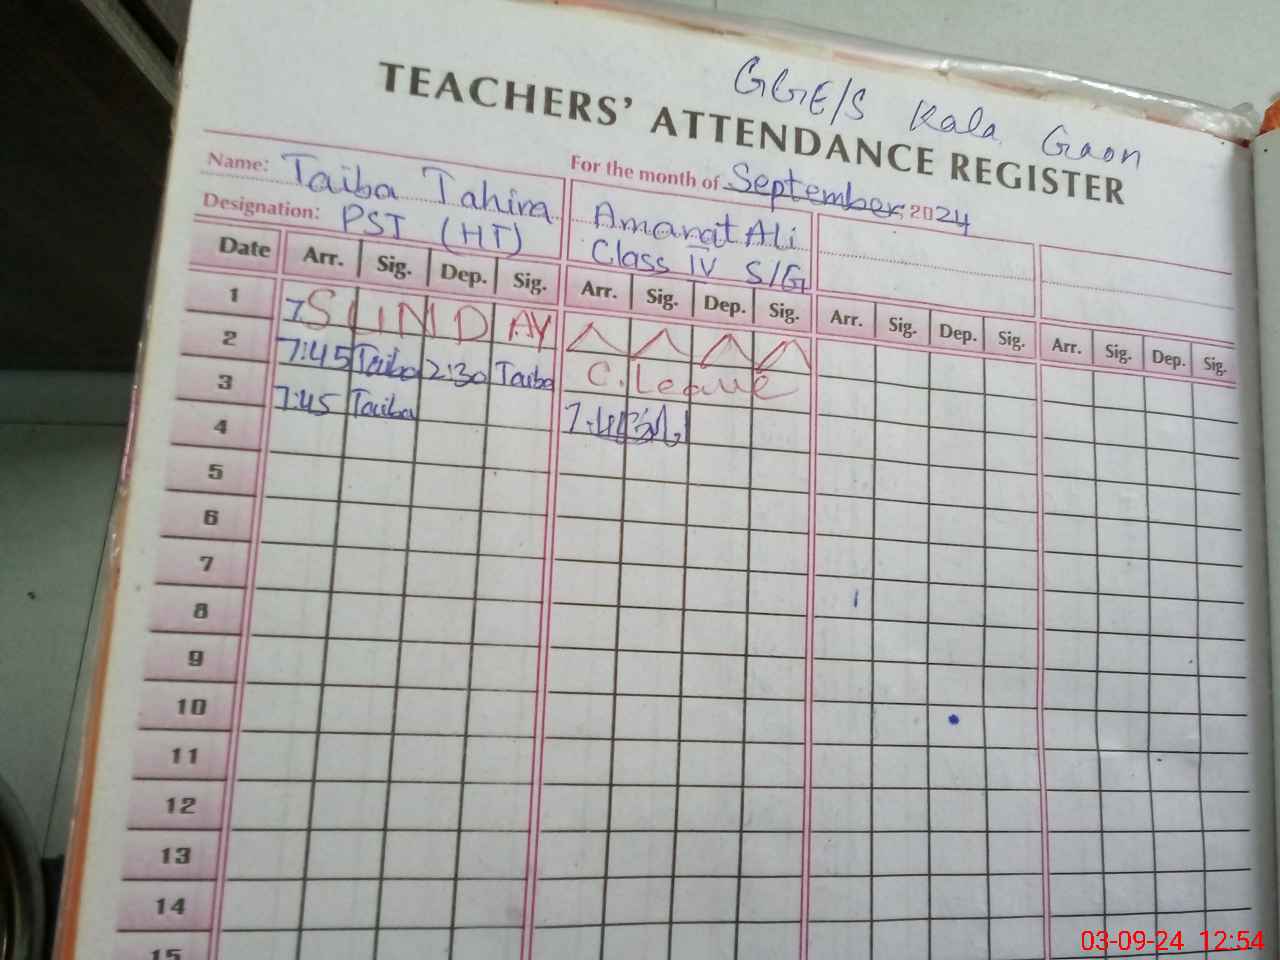 GGE/S Kala Gaon
TEACHERS' ATTENDANCE REGISTER
Name: Taiba Tahira For the month of September, 2024
Designation: PST (HT) Amanat Ali
Class IV S/G
Date Arr. Sig. Dep. Sig. Arr. Sig. Dep. Sig. Arr. Sig. Dep. Sig. Arr. Sig. Dep. Sig.
1 7 SUNDAY
2 7:45 Taiba 2:30 Taiba C. Leave
3 7:45 Taiba
4
5
6
7
8
9
10
11
12
13
14
15
03-09-24 12:54